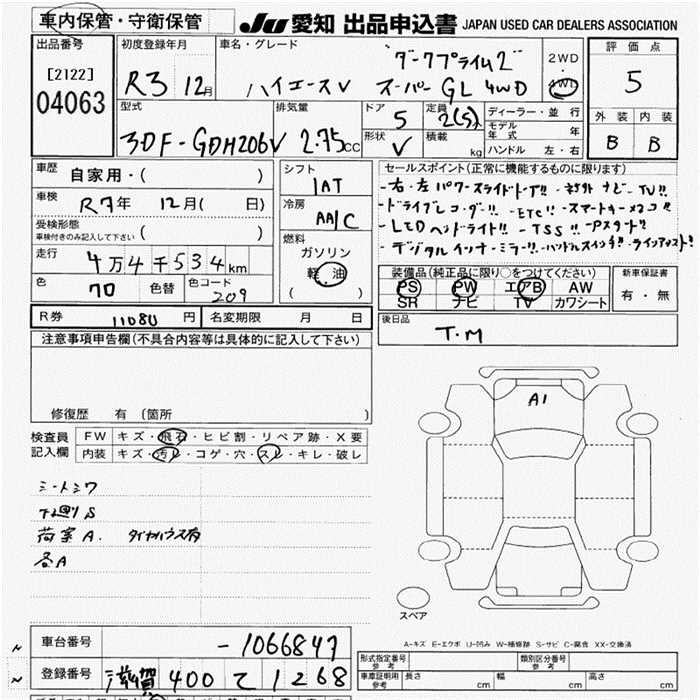 車内保管・守衛保管
JU 愛知 出品申込書 JAPAN USED CAR DEALERS ASSOCIATION
出品番号
[2122]
04063
初度登録年月
R3 12月
車名・グレード
ダークプライム2
ハイエースV スーパーGL 4WD
2WD
4WD
評価点
5
外装 内装
B B
型式
3DF-GDH206V
排気量
2.75cc
ドア
5
形状
V
定員
2(5)人
積載
kg
ディーラー・並行
モデル年式 年
ハンドル 左・右
車歴
自家用・( )
車検
R7年 12月( 日)
受検形態
車検付きのみ記入して下さい ( )
走行
4万4千534km
色
70
色替
色コード
209
シフト
1AT
冷房
AA/C
燃料
ガソリン
軽油
( )
セールスポイント(正常に機能するものに限ります)
-右・左パワースライドドア!! -ネダリナビ-TV!!
-ドライブレコーダ!! -ETC!! -スマートキー2コ!!
-LEDヘッドライト!! -TSS!! -Pスタート!!
-デジタルインナーミラー!! -ハンドルスイッチ!! -ラインアシスト!!
装備品(純正品に限り○をつけてください)
PS PW エアB AW
SR ナビ TV カワシート
新車保証書
有・無
R券 11080 円
名変期限 月 日
後日品
T・M
注意事項申告欄(不具合内容等は具体的に記入して下さい)
修復歴 有 (箇所 )
検査員記入欄
FW キズ・飛石・ヒビ割・リペア跡・X要
内装 キズ・汚レ・コゲ・穴・スレ・キレ・破レ
シートシワ
下廻りS
荷室A. タイヤハウス有
各A
A1
スペア
A-キズ E-エクボ U-凹み W-補修跡 S-サビ C-腐食 XX-交換済
車台番号
-1066847
登録番号
滋賀 400 て 1268
形式指定番号
参考
類別区分番号
参考
車庫証明用
参考
長さ cm 幅 cm 高さ cm